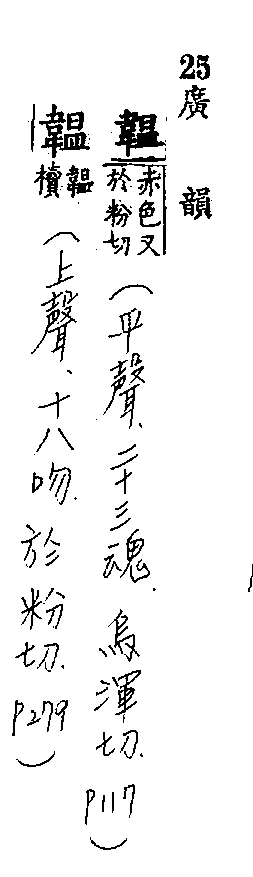 25 廣韻
韞 赤色又於粉切 (平聲、二十三魂、烏渾切、P117)
韞 韞櫝 (上聲、十八吻、於粉切、P279)